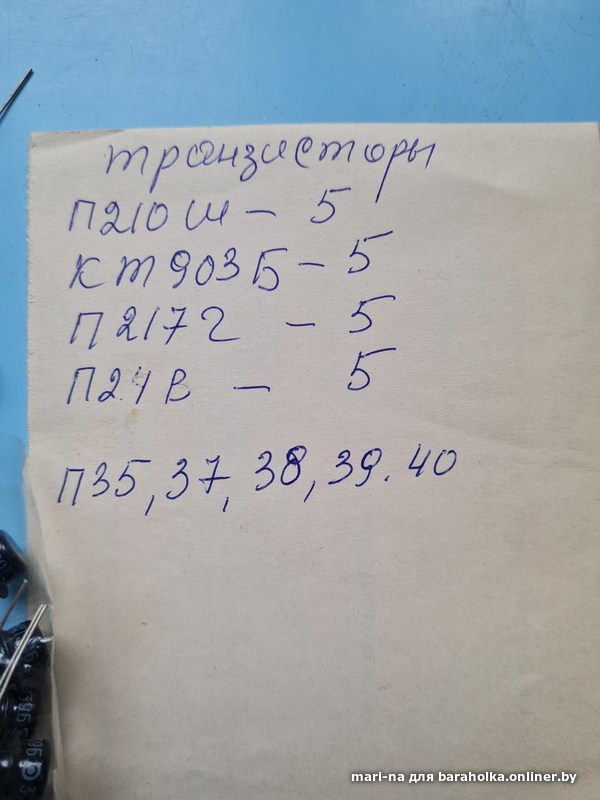 транзисторы
П210Ш - 5
КТ903Б - 5
П217Г - 5
П214В - 5
П35, 37, 38, 39. 40
mari-na для baraholka.onliner.by